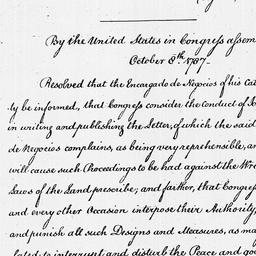 By the United States in Congress assem
October 8th 1787.
Resolved that the Encargado de Negocios of his Cat
ty be informed, that Congress consider the Conduct of
in writing and publishing the Letter, of which the said
de Negocios complains, as being very reprehensible, an
will cause such Proceedings to be had against the Wri
Laws of the Land prescribe; and farther, that Congress
and every other Occasion interpose their Authority,
and punish all such Designs and Measures, as ma
to interrupt and disturb the Peace and goo